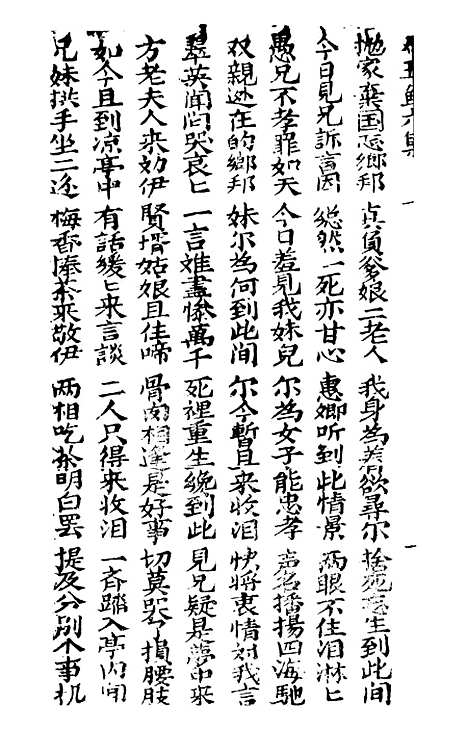 抛家棄国忘鄉邦　点負爹娘二老人　我身為着欲尋尔　捨死　生到此間
今日見兄訴言因　総然一死亦甘心　惠卿听到此情景　两眼不住泪淋匕
愚兄不孝罪如天　今日羞見我妹兒　尔為女子能忠孝　声名播揚四海馳
双親迯在的鄉邦　妹尔為何到此间　尔今暫且来收泪　快將衷情对我言
翠英闻问哭哀匕　一言难盡惨萬千　死裡重生纔到此　見兄疑是夢中来
方老夫人来劝伊　賢壻姑娘且住啼　骨肉相逢是好事　切莫 今損腰肢
如今且到凉亭中　有話緩匕来言談　二人只得来收泪　一斉踏入亭内间
兄妹拱手坐二边　梅香捧茶来敬伊　两相吃茶明白罢　提及分别个事机